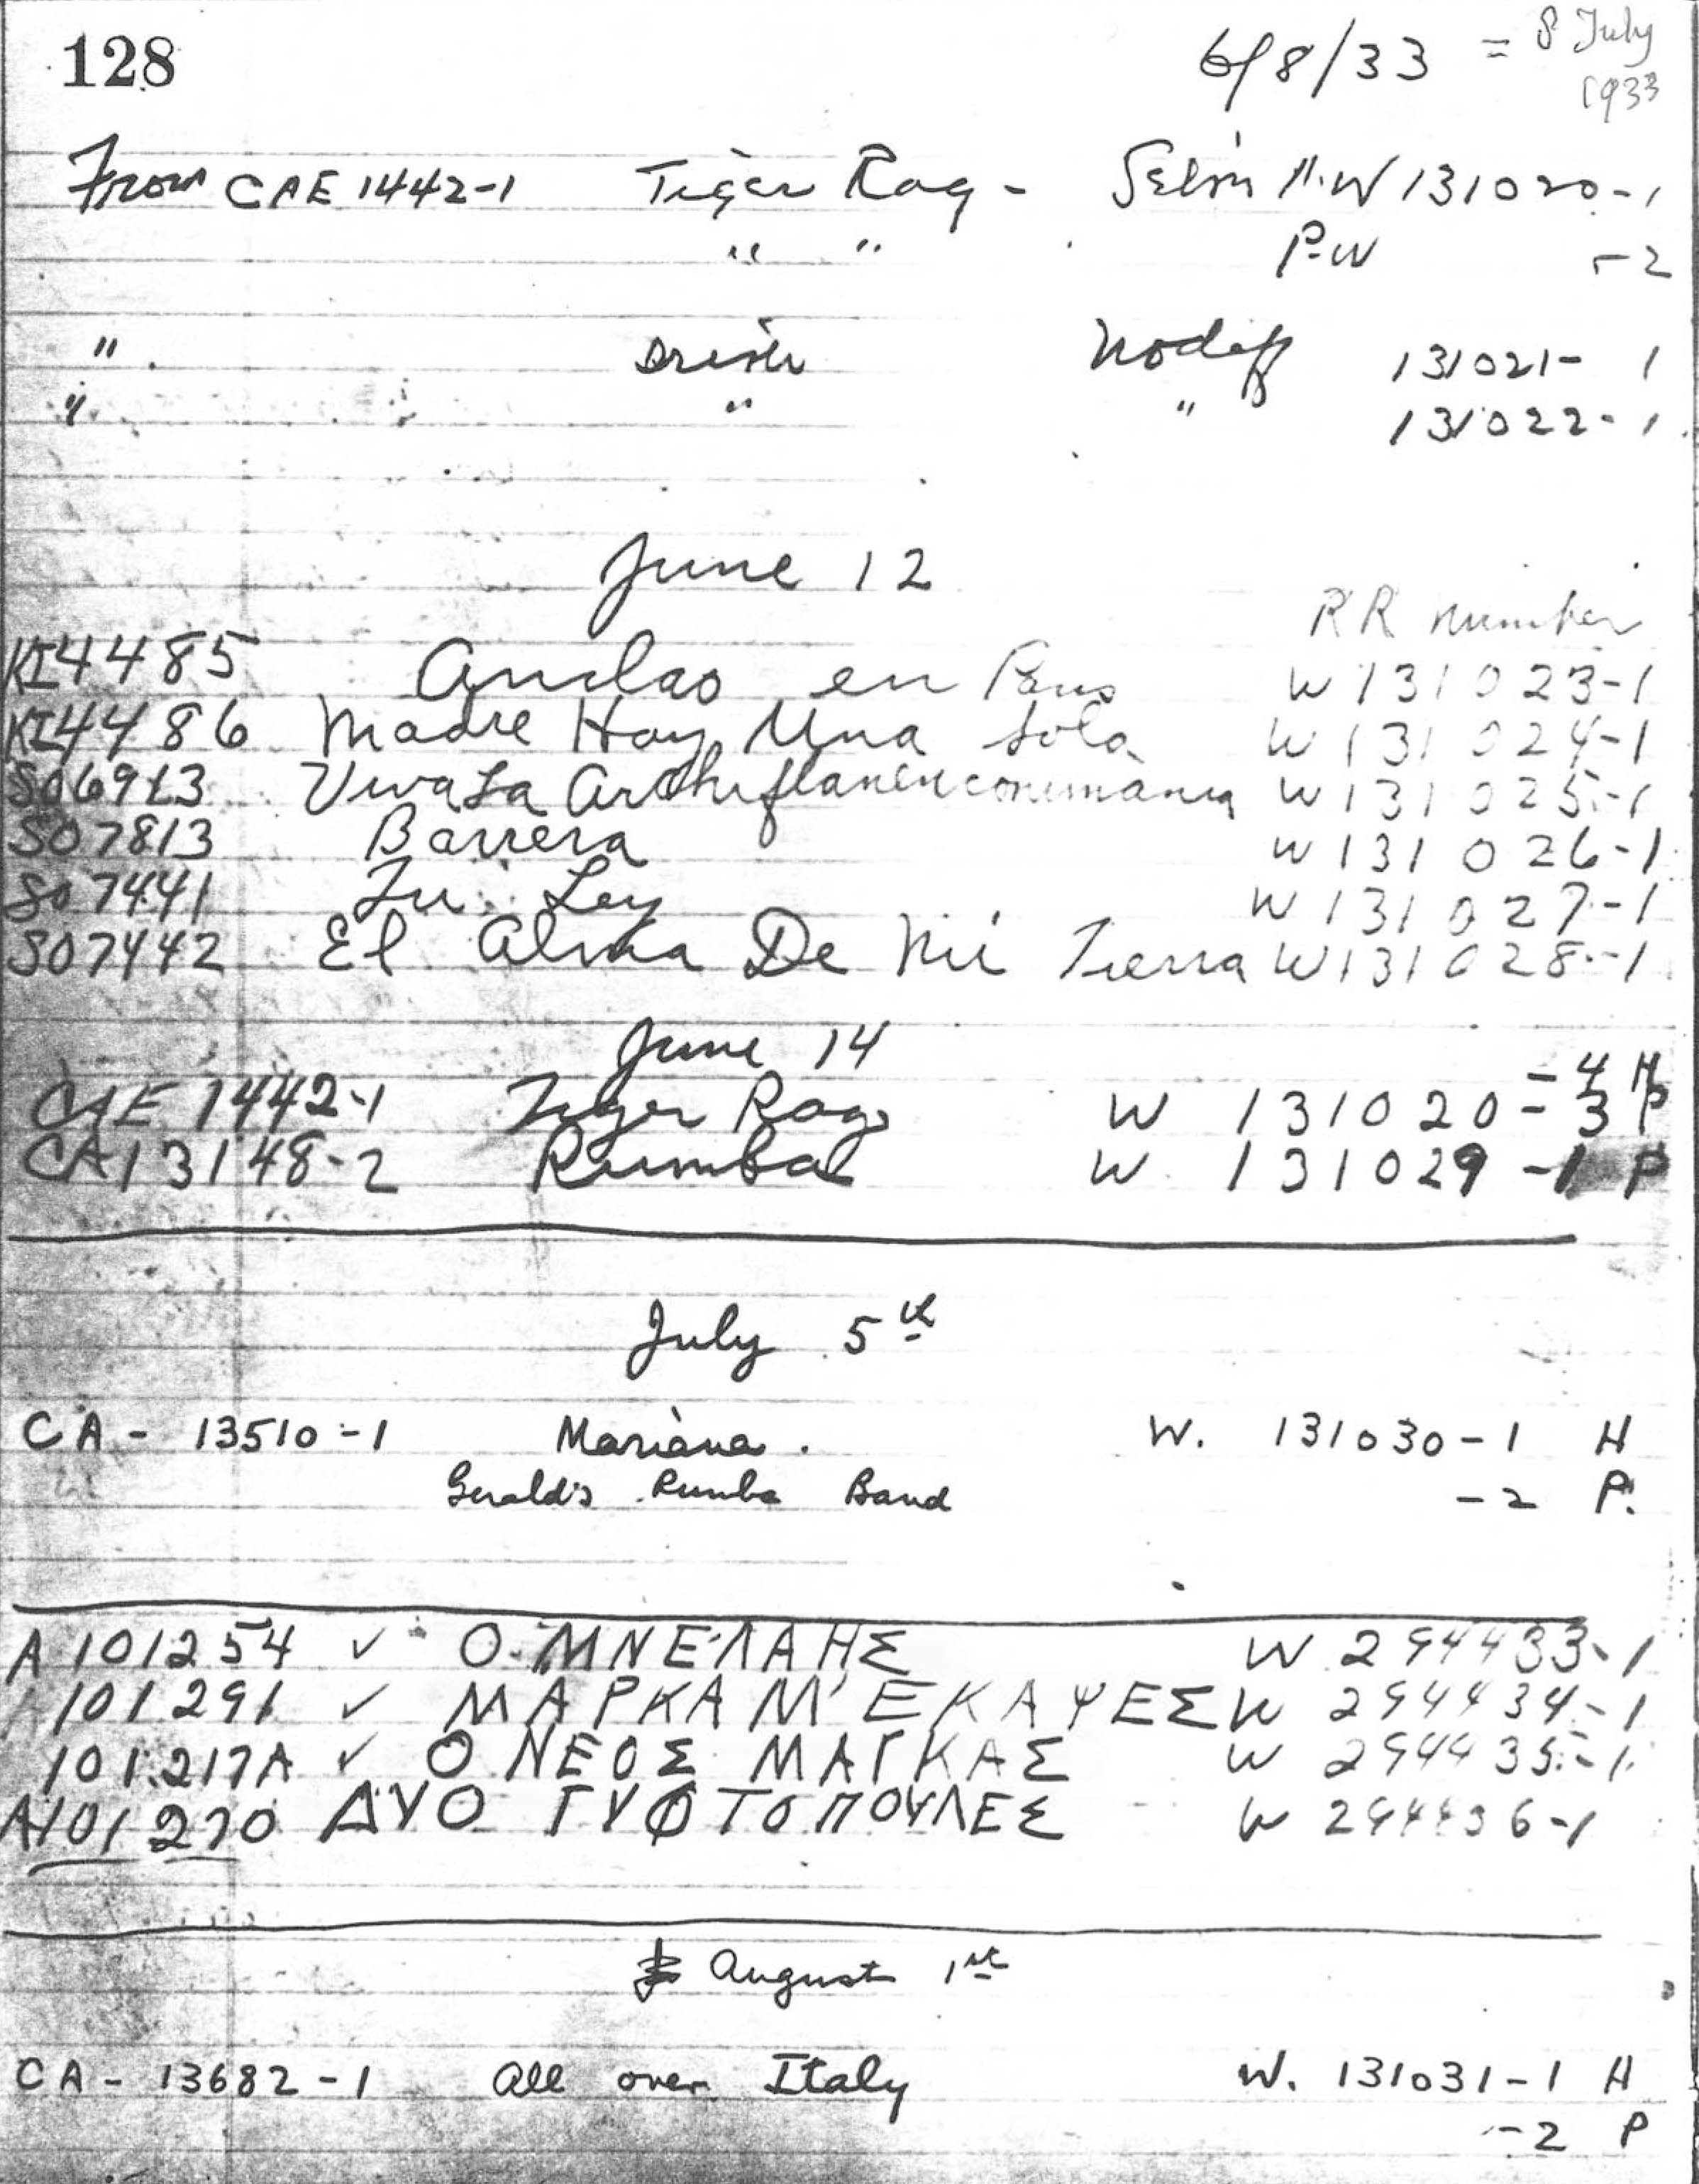 128
6/8/33 = 8 July
1933
From CAE 1442-1 Tiger Rag - H.W 131020-1
" " P-W -2
" . 131021- 1
" " " 131022-1
June 12
RR number
KI4485 en W 131023-1
KI4486 Madre Hay Una Sola W 131024-1
SO6913 Viva La W 131025-1
SO7813 Barrera W 131026-1
SO7441 Tu Ley W 131027-1
SO7442 El Alma De Mi Tierra W131028-1
June 14
-4 H
CAE 1442-1 Tiger Rag W 131020-3 P
CA13148-2 Rumba W 131029-1 P
July 5th
CA- 13510-1 Mariana. W. 131030-1 H
Geraldo's Rumba Band -2 P.
A101254 ✓ Ο ΜΝΕΛΑΗΣ W 294433-1
101291 ✓ ΜΑΡΚΑ Μ'ΕΚΑΨΕΣ W 294434-1
101217A ✓ Ο ΝΕΟΣ ΜΑΓΚΑΣ W 294435-1
A101270 ΔΥΟ ΓΥΦΤΟΠΟΥΛΕΣ W 294436-1
August 1st
CA- 13682-1 All over Italy W. 131031-1 H
-2 P